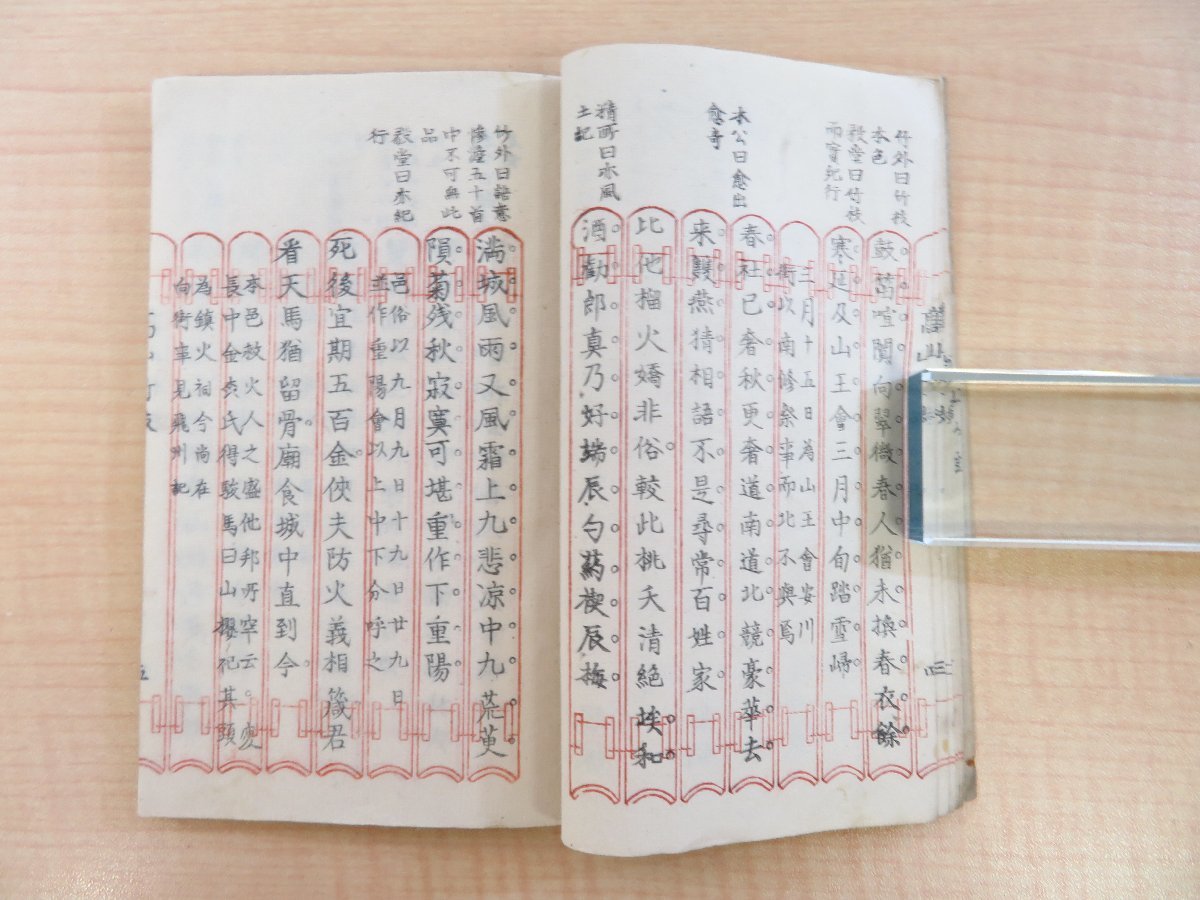 竹外曰竹枝
本色
敉堂曰竹枝
而實紀行
鼓笛喧闐向翠微春人猶未換春衣餘
寒延及山王會三月中旬踏雪歸
三月十五日為山王會安川
街以南修祭事而北不與焉
木公曰愈出
愈奇
春社已奢秋更奢道南道北競豪華去
来䴏燕猜相語不是尋常百姓家
精所曰亦風
土記
比他榴火嬌非俗較此桃夭清絶埃和
酒勸郎真乃好端辰勺葯楔辰梅
竹外曰語意
悽淒五十首
中不可無此
品
敉堂曰亦紀
行
満城風雨又風霜上九悲凉中九荒萸
隕菊残秋寂寞可堪重作下重陽
邑俗以九月九日十九日廿九日
並作重陽會以上中下分呼之
死後宜期五百金俠夫防火義相箴君
看天馬猶留骨廟食城中直到今
本邑救火人之盛他邦所罕云
長中金森氏得駿馬曰山櫻祀其頭
為鎮火祠今尚在
向街車見飛州記